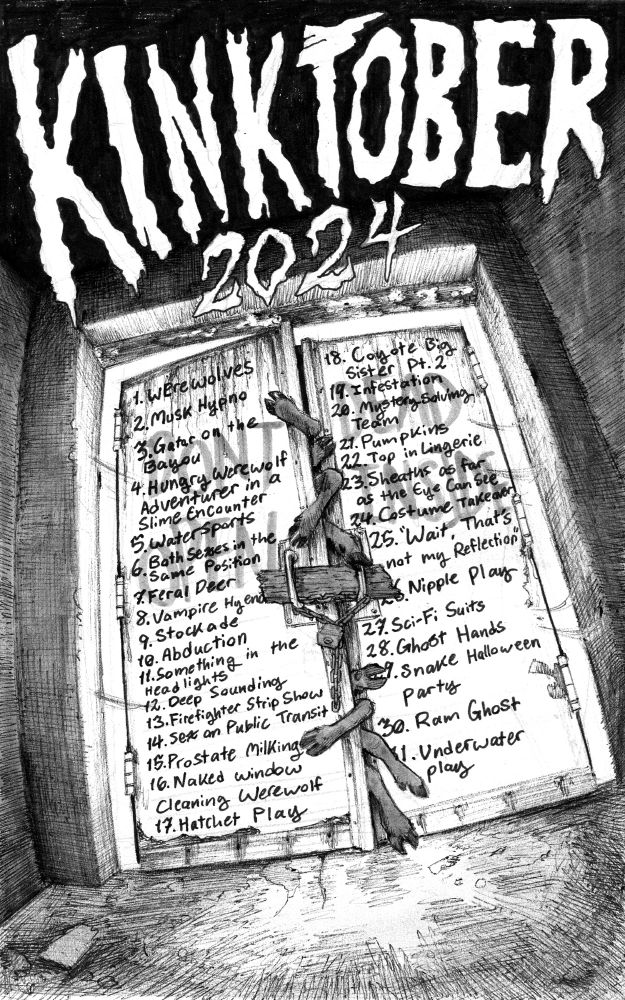 KINKTOBER
2024
1. Werewolves
2. Musk Hypno
3. Gator on the
Bayou
4. Hungry Werewolf
Adventurer in a
Slime Encounter
5. Watersports
6. Both Sexes in the
Same Position
7. Feral Deer
8. Vampire Hyena
9. Stockade
10. Abduction
11. Something in the
Headlights
12. Deep Sounding
13. Firefighter Strip Show
14. Sex on Public Transit
15. Prostate Milking
16. Naked window
Cleaning Werewolf
17. Hatchet Play
18. Coyote Big
Sister Pt. 2
19. Infestation
20. Mystery Solving
Team
21. Pumpkins
22. Top in Lingerie
23. Sheaths as far
as the Eye Can See
24. Costume Takeover
25. "Wait, That's
not my Reflection"
6. Nipple Play
27. Sci-Fi Suits
28. Ghost Hands
9. Snake Halloween
Party
30. Ram Ghost
1. Underwater
play